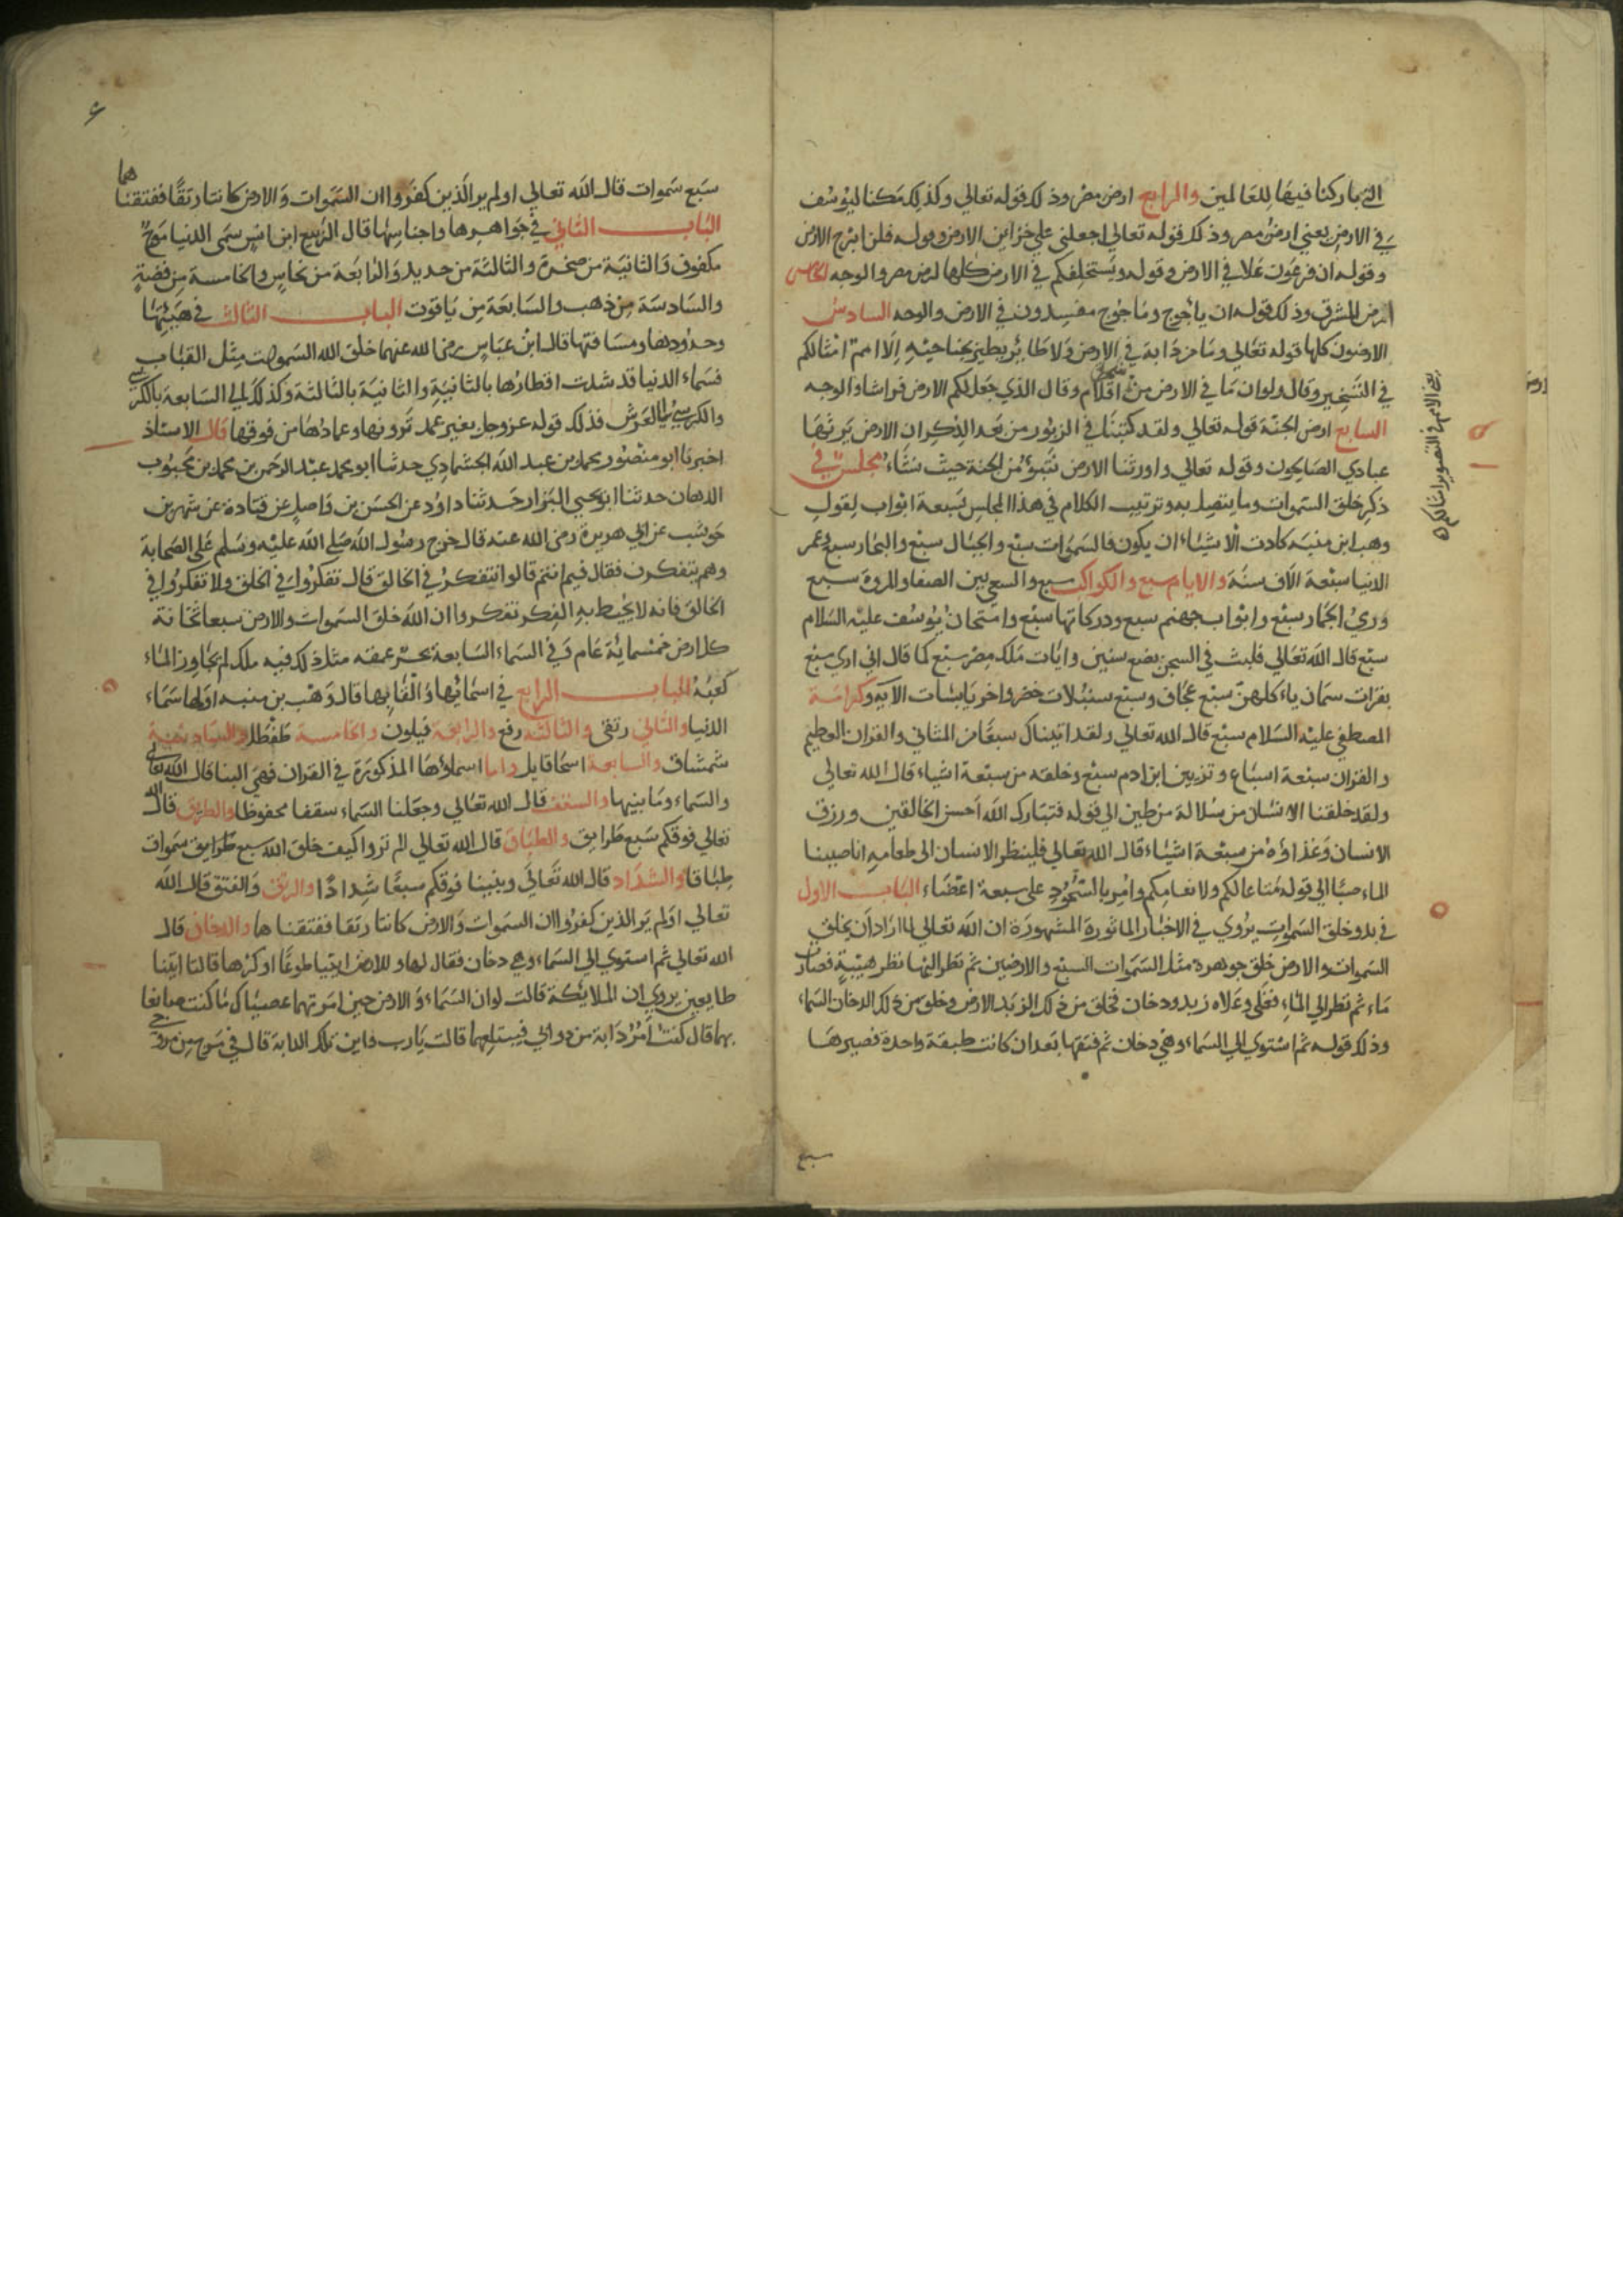 التي باركنا فيها للعالمين والرابع ارض مصر وذلك قوله تعالي وكذلك مكنا ليوسف
في الارض يعني ارض مصر وذلك قوله تعالي اجعلني علي خزاين الارض وقوله فلن ابرح الارض
وقوله ان فرعون علا في الارض وقوله ويستخلفكم في الارض كلها ارض مصر والوجه الخامس
ارض المشرق وذلك قوله ان ياجوج وماجوج مفسدون في الارض والوجه السادس
الارضون كلها قوله تعالي وما من دابة في الارض ولا طائر يطير بجناحيه الا امم امثالكم
في التسخير وقال ولو ان ما في الارض من شجرة اقلام وقال الذي جعل لكم الارض فراشا والوجه
السابع ارض الجنة قوله تعالي ولقد كتبنا في الزبور من بعد الذكر ان الارض يرثها
عبادي الصالحون وقوله تعالي واورثنا الارض نتبوّء من الجنة حيث نشاء مجلس في
ذكر خلق السموات وما يتصل به وترتيب الكلام في هذا المجلس بسبعة ابواب لقول
وهب ابن منبه كادت الاشياء ان يكون فالسموات سبع والجبال سبع والبحار سبع وعمر
الدنيا سبعة الاف سنة والايام سبع والكواكب سبع والسعي بين الصفا والمروة سبع
ورمي الجمار سبع وابواب جهنم سبع ودركاتها سبع وامتحان يوسف عليه السلام
سبع قال الله تعالي فلبث في السجن بضع سنين وايات ملك مصر سبع كما قال اني اري سبع
بقرات سمان ياءكلهن سبع عجاف وسبع سنبلات خضر واخر يابسات الآية وكرامة
المصطفي عليه السلام سبع قال الله تعالي ولقد اتيناك سبعا من المثاني والقران العظيم
والقران سبعة اسباع وتزيين ابن ادم سبع وخلقه من سبعة اشياء قال الله تعالي
ولقد خلقنا الانسان من سلالة من طين الي قوله فتبارك الله احسن الخالقين ورزق
الانسان وغذاؤه من سبعة اشياء قال الله تعالي فلينظر الانسان الي طعامه انا صببنا
الماء صبا الي قوله متاعا لكم ولانعامكم وامر بالسجود علي سبعة اعضاء الباب الاول
في بدو خلق السموات يروي في الاخبار الماثورة المشهورة ان الله تعالي لما اراد ان يخلق
السموات والارض خلق جوهرة مثل السموات السبع والارضين ثم نظر اليها نظر هيبة فصارت
ماء ثم نظر الي الماء فغلي وعلاه زبد ودخان فخلق من ذلك الزبد الارض وخلق من ذلك الدخان السماء
وذلك قوله ثم استوي الي السماء وهي دخان ثم فتقها بعد ان كانت طبقة واحدة فصيرها
سبع
يعني الامم في التصوير امثالكم
سبع سموات قال الله تعالي اولم ير الذين كفروا ان السموات والارض كانتا رتقا ففتقناهما
الباب الثاني في جواهرها واجناسها قال الربيع ابن انس سمي الدنيا موج
مكفوف والثانية من صخرة والثالثة من حديد والرابعة من نحاس والخامسة من فضة
والسادسة من ذهب والسابعة من ياقوت الباب الثالث في هيئتها
وحدودها ومسافتها قال ابن عباس رضي الله عنهما خلق الله السموات مثل القباب
فسماء الدنيا قد شدت اقطارها بالثانية والثانية بالثالثة وكذلك الي السابعة بالكرسي
والكرسي بالعرش فذلك قوله عز وجل بغير عمد ترونها وعمادها من فوقها قال الاستاذ
اخبرنا ابو منصور محمد بن عبد الله الجشمادي حدثنا ابو محمد عبد الرحمن بن محمد بن محبوب
الدهان حدثنا ابو يحيي البزار حدثنا داود عن الحسن بن واصل عن قتادة عن شهر بن
حوشب عن ابي هريرة رضي الله عنه قال خرج رسول الله صلي الله عليه وسلم علي الصحابة
وهم يتفكرن فقال فيم انتم قالوا نتفكر في الخالق قال تفكروا في الخلق ولا تفكروا في
الخالق فانه لا يحيط به الفكر تفكروا ان الله خلق السموات والارض سبعا ثخانة
كل ارض خمسمائة عام وفي السماء السابعة بحر عمقه مثل ذلك فيه ملك لم يجاوز الماء
كعبه الباب الرابع في اسمائها والقابها قال وهب بن منبه اولها سماء
الدنيا والثاني رتقي والثالثة رفع والرابعة فيلون والخامسة طفطل والسادسة
شمشاق والسابعة اسحاقايل واما اسماؤها المذكورة في القران فهي البنا قال الله تعالي
والسماء وما بنيها والسقف قال الله تعالي وجعلنا السماء سقفا محفوظا والطرق قال الله
تعالي فوقكم سبع طرايق والطباق قال الله تعالي الم تروا كيف خلق الله سبع طرايق سموات
طباقا والشداد قال الله تعالي وبنينا فوقكم سبعا شدادا والرتق والفتق قال الله
تعالي اولم ير الذين كفروا ان السموات والارض كانتا رتقا ففتقناهما والدخان قال
الله تعالي ثم استوي الي السماء وهي دخان فقال لها وللارض ايتيا طوعا او كرها قالتا اتينا
طايعين يروي ان الملايكة قالت لو ان السماء والارض حين امرتهما عصيناك ما كنت صانعا
بهما قال كنت امر دابة من دوابي فيبتلعهما قالت يارب واين تلك الدابة قال في مرج من مروجي